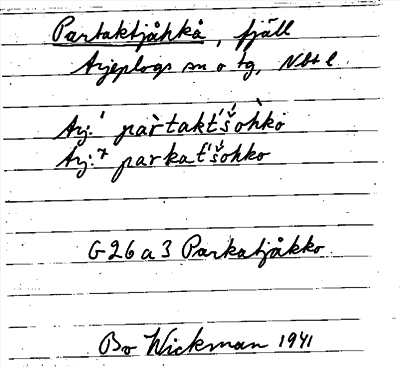 Partaktjåhkå, fjäll
Arjeplogs sn o tg, Nbtl
Arj.¹ pàrtakt́'š́ohkò
Arj.⁷ parkat́'š́ohko
G 26 a 3 Parkatjåkko
Bo Wickman 1941